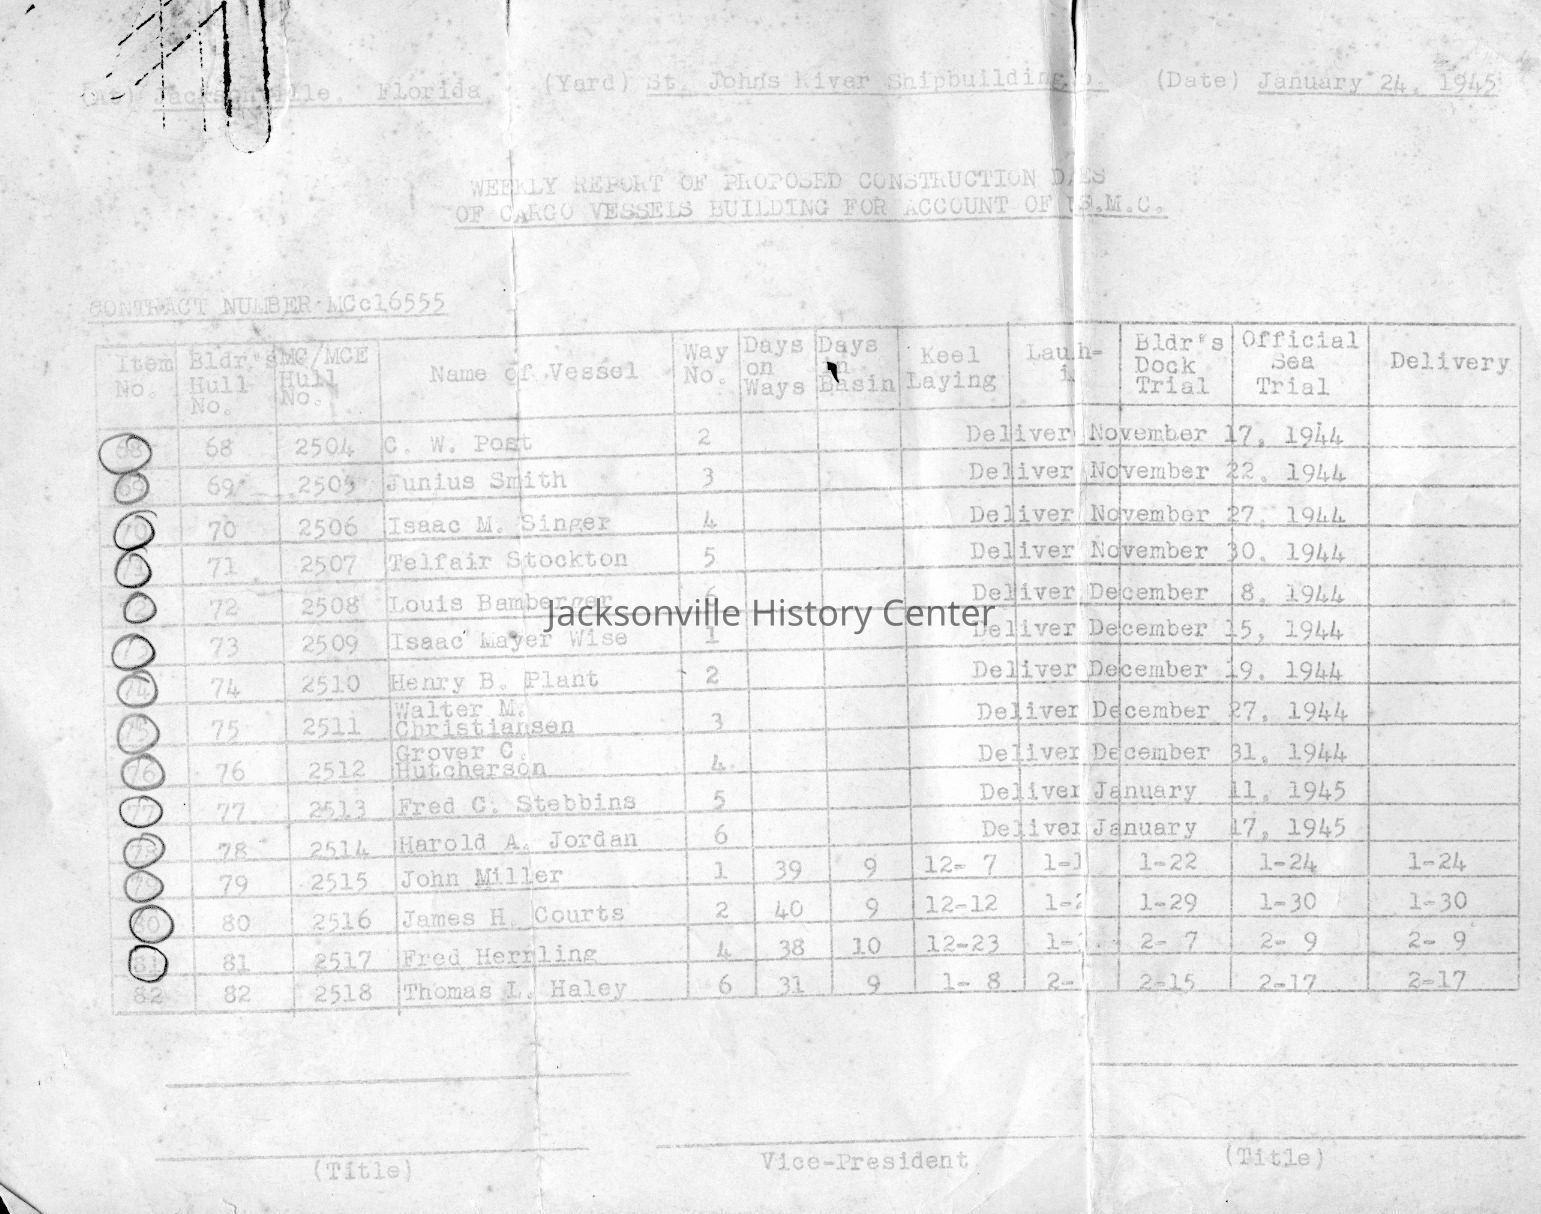 (At) Jacksonville, Florida (Yard) St. Johns River Shipbuilding (Date) January 24, 1945
WEEKLY REPORT OF PROPOSED CONSTRUCTION
OF CARGO VESSELS BUILDING FOR ACCOUNT OF U.S.M.C.
CONTRACT NUMBER MCc16555
Item No. Bldr's Hull No. MC/MCE Hull No. Name of Vessel Way No. Days on Ways Days in Basin Keel Laying Bldr's Dock Trial Official Sea Trial Delivery
68 68 2504 C. W. Post 2 Deliver November 17, 1944
69 69 2505 Junius Smith 3 Deliver November 22, 1944
70 70 2506 Isaac M. Singer 4 Deliver November 27, 1944
71 71 2507 Telfair Stockton 5 Deliver November 30, 1944
72 2508 Louis Bamberger 6 Deliver December 8, 1944
73 73 2509 Isaac Mayer Wise 1 Deliver December 15, 1944
74 74 2510 Henry B. Plant 2 Deliver December 19, 1944
75 75 2511 Walter M. Christiansen 3 Deliver December 27, 1944
76 76 2512 Grover C. Hutcherson 4 Deliver December 31, 1944
77 77 2513 Fred C. Stebbins 5 Deliver January 11, 1945
78 78 2514 Harold A. Jordan 6 Deliver January 17, 1945
79 79 2515 John Miller 1 39 9 12- 7 1-22 1-24 1-24
80 80 2516 James H. Courts 2 40 9 12-12 1-29 1-30 1-30
81 81 2517 Fred Herrling 4 38 10 12-23 2- 7 2- 9 2- 9
82 82 2518 Thomas L. Haley 6 31 9 1- 8 2-15 2-17 2-17
Jacksonville History Center
(Title) Vice-President (Title)